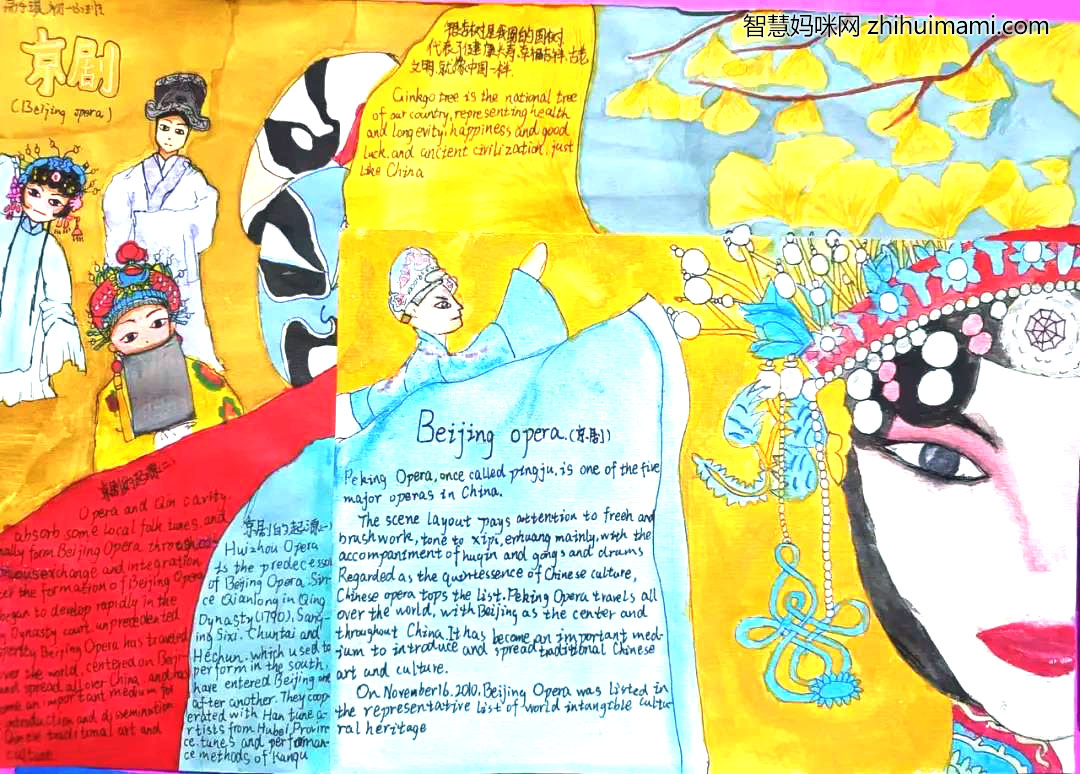 智慧妈咪网 zhihuimami.com
京剧
(Beijing opera)
银杏树是我国的国树
代表了健康长寿,幸福吉祥,古老
文明.就像中国一样.
Ginkgo tree is the national tree
of our country, representing health
and longevity, happiness and good
luck, and ancient civilization, just
like China
Beijing opera.(京剧)
Peking Opera, once called pingju, is one of the five
major operas in China.
The scene layout pays attention to freeh and
brushwork, tone to xipi, erhuang mainly, with the
accompaniment of huqin and gongs and drums
Regarded as the quintessence of Chinese culture,
Chinese opera tops the list. Peking Opera travels all
over the world, with Beijing as the center and
throughout China. It has become an important med-
ium to introduce and spread traditional Chinese
art and culture.
On November 16. 2010, Beijing Opera was listed in
the representative list of world intangible cultu-
ral heritage
京剧的起源(一)
Huizhou Opera
is the predecessor
of Beijing Opera. Sin-
ce Qianlong in Qing
Dynasty (1790), Sang-
ing Sixi, Chuntai and
Hechun, which used to
perform in the south,
have entered Beijing one
after another. They coop-
erated with Han tune a-
rtists from Hubei Provin-
ce. tunes and performan-
ce methods of Kunqu
京剧的起源(二)
Opera and Qin cavity
absorb some local folk tunes, and
finally form Beijing Opera through
exchange and integration
the formation of Beijing Opera
began to develop rapidly in the
Dynasty court unprecedented
Beijing Opera has traveled
over the world, centered on Beijing
and spread all over China, and has
become an important medium for
introduction and dissemination
Chinese traditional art and
culture